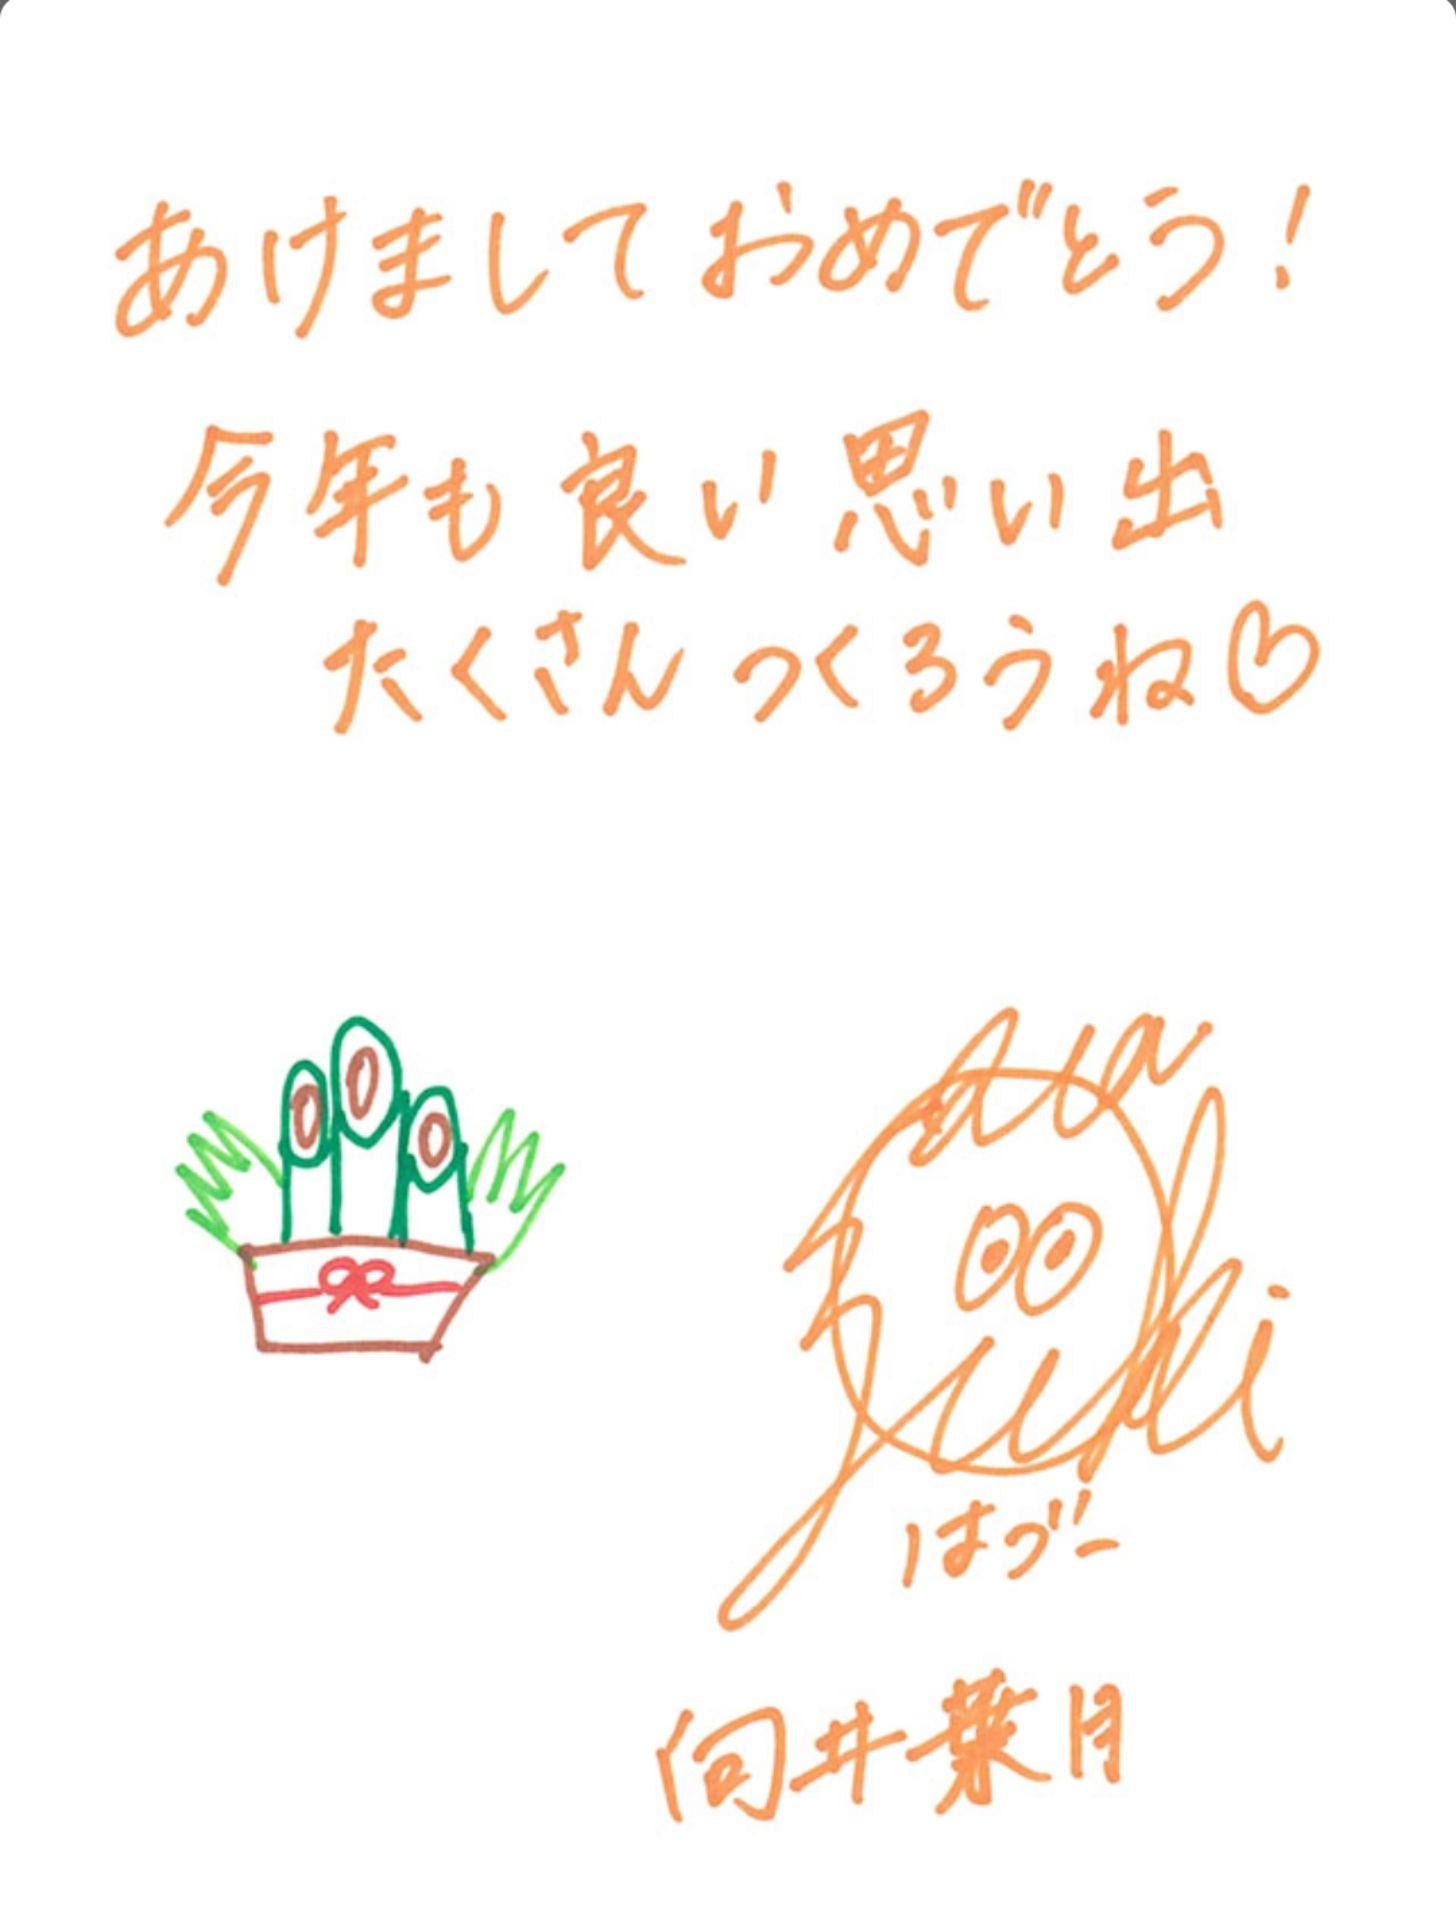 あけましておめでとう!
今年も良い思い出
たくさんつくろうね♡
Hazuki
はづー
向井葉月